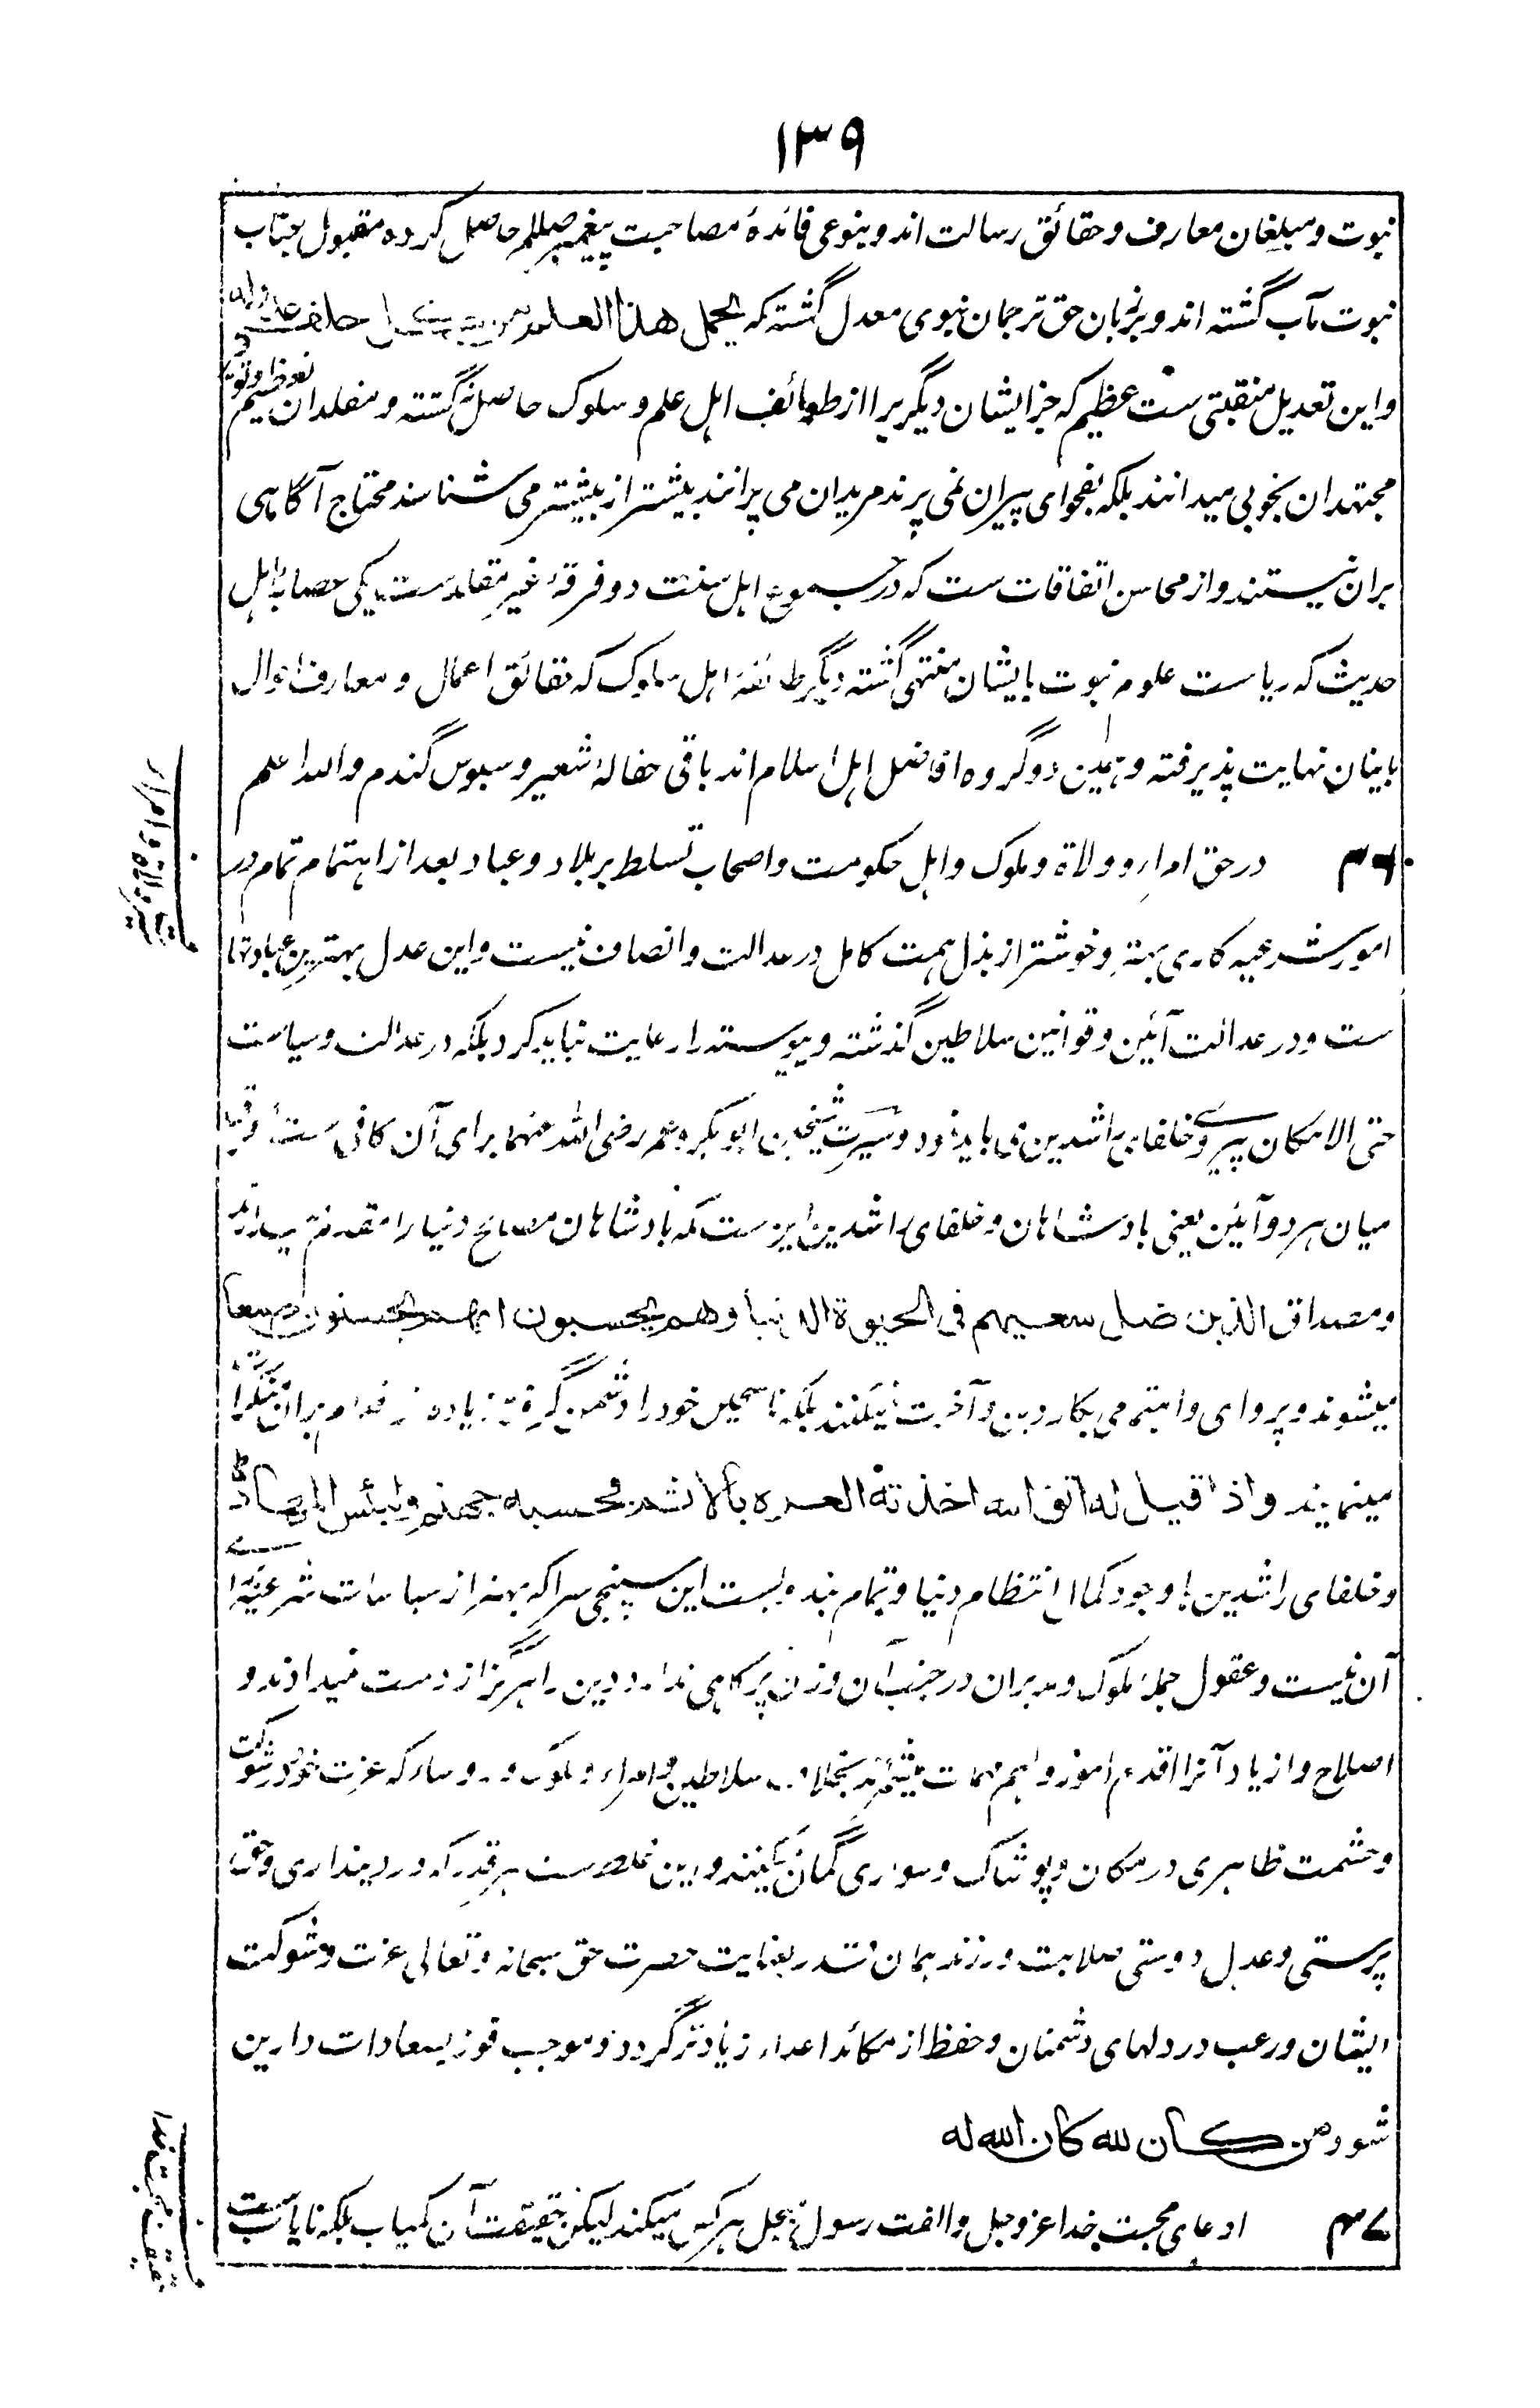 ۱۳۹
نبوت و مبلغان معارف و حقائق رسالت اند و بنوعی فائدهٔ مصاحبت پیغمبر صللم حاصل کرده مقبول جناب
نبوت مآب گشته اند و بزبان حق ترجمان نبوی معدل گشته که یحمل هذا العلم من کل خلف عدوله
و این تعدیل منقبتی ست عظیم که جز ایشان دیگریرا از طوائف اهل علم و سلوک حاصل نگشته و مقلدان تعظیم
مجتهدان بخوبی میدانند بلکه بفحوای پیران نمی پرند مریدان می پرانند بیشتر از بیشتر می شناسند محتاج آگاهی
بران نیستند و از محاسن اتفاقات ست که در مجموع اهل سنت دو فرقهٔ غیر مقلد ست یکی عصابهٔ اهل
حدیث که ریاست علوم نبوت بایشان منتهی گشته دیگر طائفهٔ اهل سلوک که حقائق اعمال و معارف احوال
باینان نهایت پذیرفته و همین دو گروه افاضل اهل اسلام اند باقی حفالهٔ شعیر و سبوس گندم والله اعلم
در حق امراء و ولاة و ملوک و اهل حکومت و اصحاب تسلط بر بلاد و عباد بعد از اهتمام تمام در
امور شرعیه کاری بهتر و خوشتر از بذل همت کامل در عدالت و انصاف نیست و این عدل بهترین عبادتها
ست و در عدالت آئین و قوانین سلاطین گذشته و پیوسته را رعایت نباید کرد بلکه در عدالت و سیاست
حتی الامکان پیروی خلفای راشدین می باید نمود و سیرت شیخین ابوبکر و عمر رضی الله عنهما برای آن کافی ست و فرق
میان هر دو آئین یعنی بادشاهان و خلفای راشدین این ست که بادشاهان مصالح دنیا را مقدم میدارند
و مصداق الذین ضل سعیهم فی الحیوة الدنیا وهم یحسبون انهم یحسنون صنعا
میشوند و پروای و اهتمامی بکار دین و آخرت نمیکنند بلکه ناصحین خود را دشمن گرفته زیاده تر اقدام بران منکرات
مینمایند واذا قیل له اتق الله اخذته العزة بالاثم فحسبه جهنم ولبئس المهاد
و خلفای راشدین با وجود کمال انتظام دنیا و تمام بندوبست این سپنجی سرا که بهتر از سیاسات شرعیه برای
آن نیست و عقول جملهٔ ملوک و مدبران در جنب آن وزن پر کاهی ندارد دین را هرگز از دست نمیدادند و
اصلاح و ازیاد آنرا اقدم امور و اهم مهمات میشمردند بخلاف سلاطین و امراء و ملوک و روساء که عزت خود و شوکت
و حشمت ظاهری در مکان و پوشاک و سواری گمان میکنند و این غلط ست هر قدر که در دینداری و حق
پرستی و عدل دوستی صلابت ورزند همان قدر بعنایت حضرت حق سبحانه و تعالی عزت و شوکت
ایشان و رعب در دلهای دشمنان و حفظ از مکائد اعداء زیادتر گردد و موجب فوز بسعادات دارین
شود ومن کان لله کان الله له
۳۷ ادعای محبت خدا عز و جل و الفت رسول مبجل هرکس میکند لیکن حقیقت آن کمیاب بلکه نایاب ست